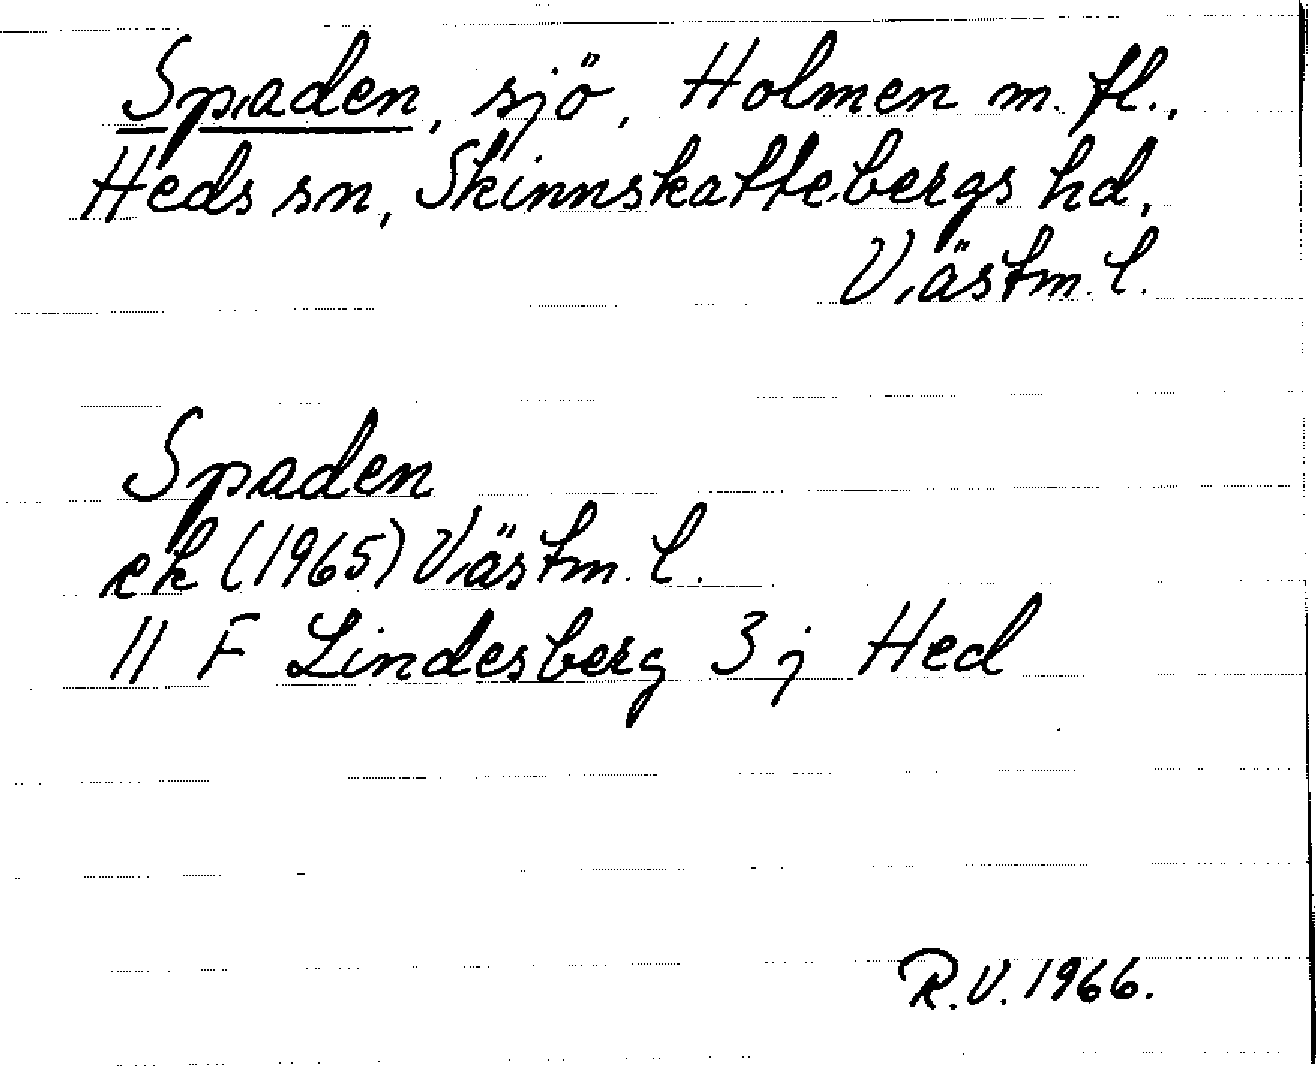 Spaden, sjö, Holmen m. fl.,
Heds sn, Skinnskattebergs hd,
Västm. l.
Spaden
ek (1965) Västm. l.
11 F Lindesberg 3 j Hed
R.V. 1966.